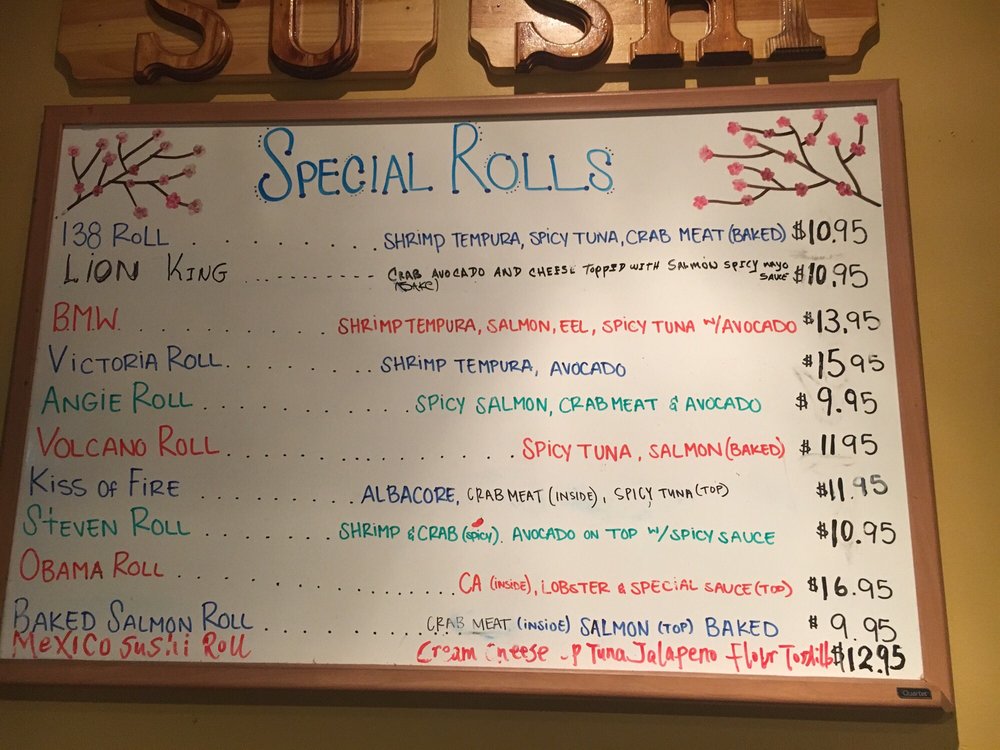 SUSHI
SPECIAL ROLLS
138 ROLL . . . . . . . . . . SHRIMP TEMPURA, SPICY TUNA, CRAB MEAT (BAKED) $10.95
LION KING . . . . . . . . . . CRAB AVOCADO AND CHEESE TOPPED WITH SALMON SPICY MAYO SAUCE $10.95
(BAKE)
B.M.W. . . . . . . . . . . SHRIMP TEMPURA, SALMON, EEL, SPICY TUNA W/AVOCADO $13.95
VICTORIA ROLL . . . . . . . . . . SHRIMP TEMPURA, AVOCADO $15 95
ANGIE ROLL . . . . . . . . . . SPICY SALMON, CRAB MEAT & AVOCADO $ 9.95
VOLCANO ROLL . . . . . . . . . . SPICY TUNA, SALMON (BAKED) $ 11 95
KISS OF FIRE . . . . . . . . . . ALBACORE, CRAB MEAT (INSIDE), SPICY TUNA (TOP) $11.95
STEVEN ROLL . . . . . . . . . . SHRIMP & CRAB (SPICY). AVOCADO ON TOP W/SPICY SAUCE $10.95
OBAMA ROLL . . . . . . . . . . CA (INSIDE), LOBSTER & SPECIAL SAUCE (TOP) $16.95
BAKED SALMON ROLL . . . . . . . . . . CRAB MEAT (INSIDE) SALMON (TOP) BAKED $ 9.95
MEXICO SUSHI ROLL Cream Cheese Tuna Jalapeno Flour $12.95
Quartet